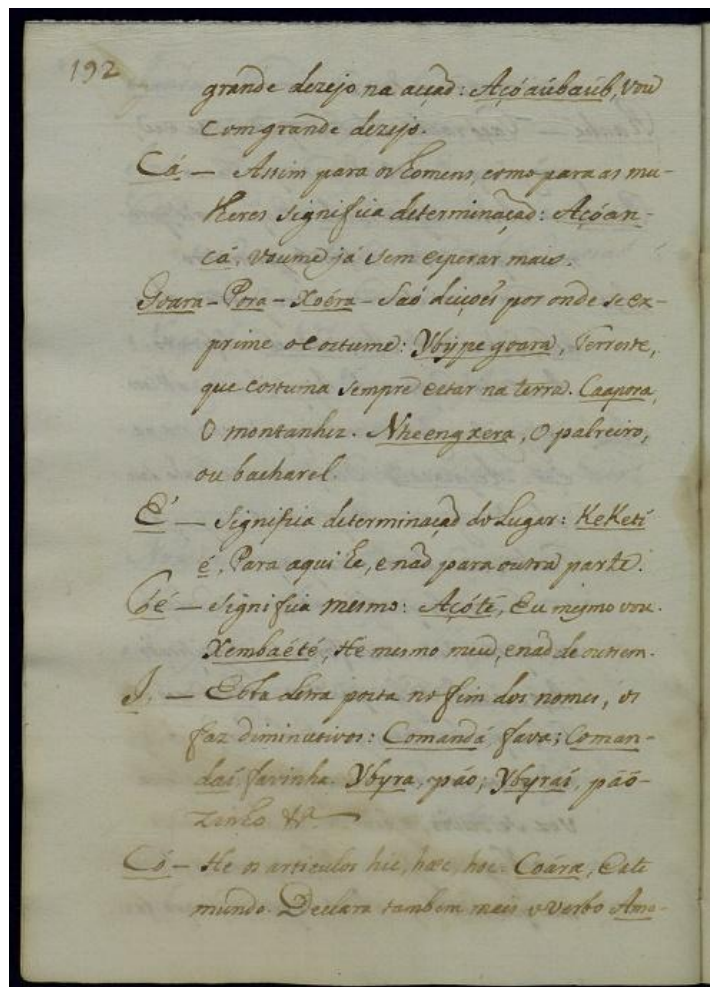 192
grande dezejo na acçaõ: Açóaúbaúb, vou
com grande dezejo.
Cá — Assim para os homens, como para as mu-
lheres significa determinaçaõ: Açóan-
cá, voume já sem esperar mais.
Goara - Pora - Xoéra - Saõ dicções por onde se ex-
prime o costume: Ybỹpe goara, Terreste,
que costuma sempre estar na terra. Caapora,
O montanhez. Nheengxera, O palreiro,
ou bacharel.
É — Significa determinaçaõ do Lugar: KeKeti
é, Para aqui he, e naõ para outra parte.
Té — Significa mesmo: Açóté, Eu mesmo vou.
Xembaété, He mesmo meu, e naõ de outrem.
I. — Esta letra posta no fim dos nomes, os
faz diminutivos: Comandá fava; Coman-
daí, favinha. Ybyra, páo; Ybyraí, páo-
zinho &.
Có — He os articulos hic, hæc, hoc. Coára, Este
mundo. Declara tambem mais o Verbo Amo-